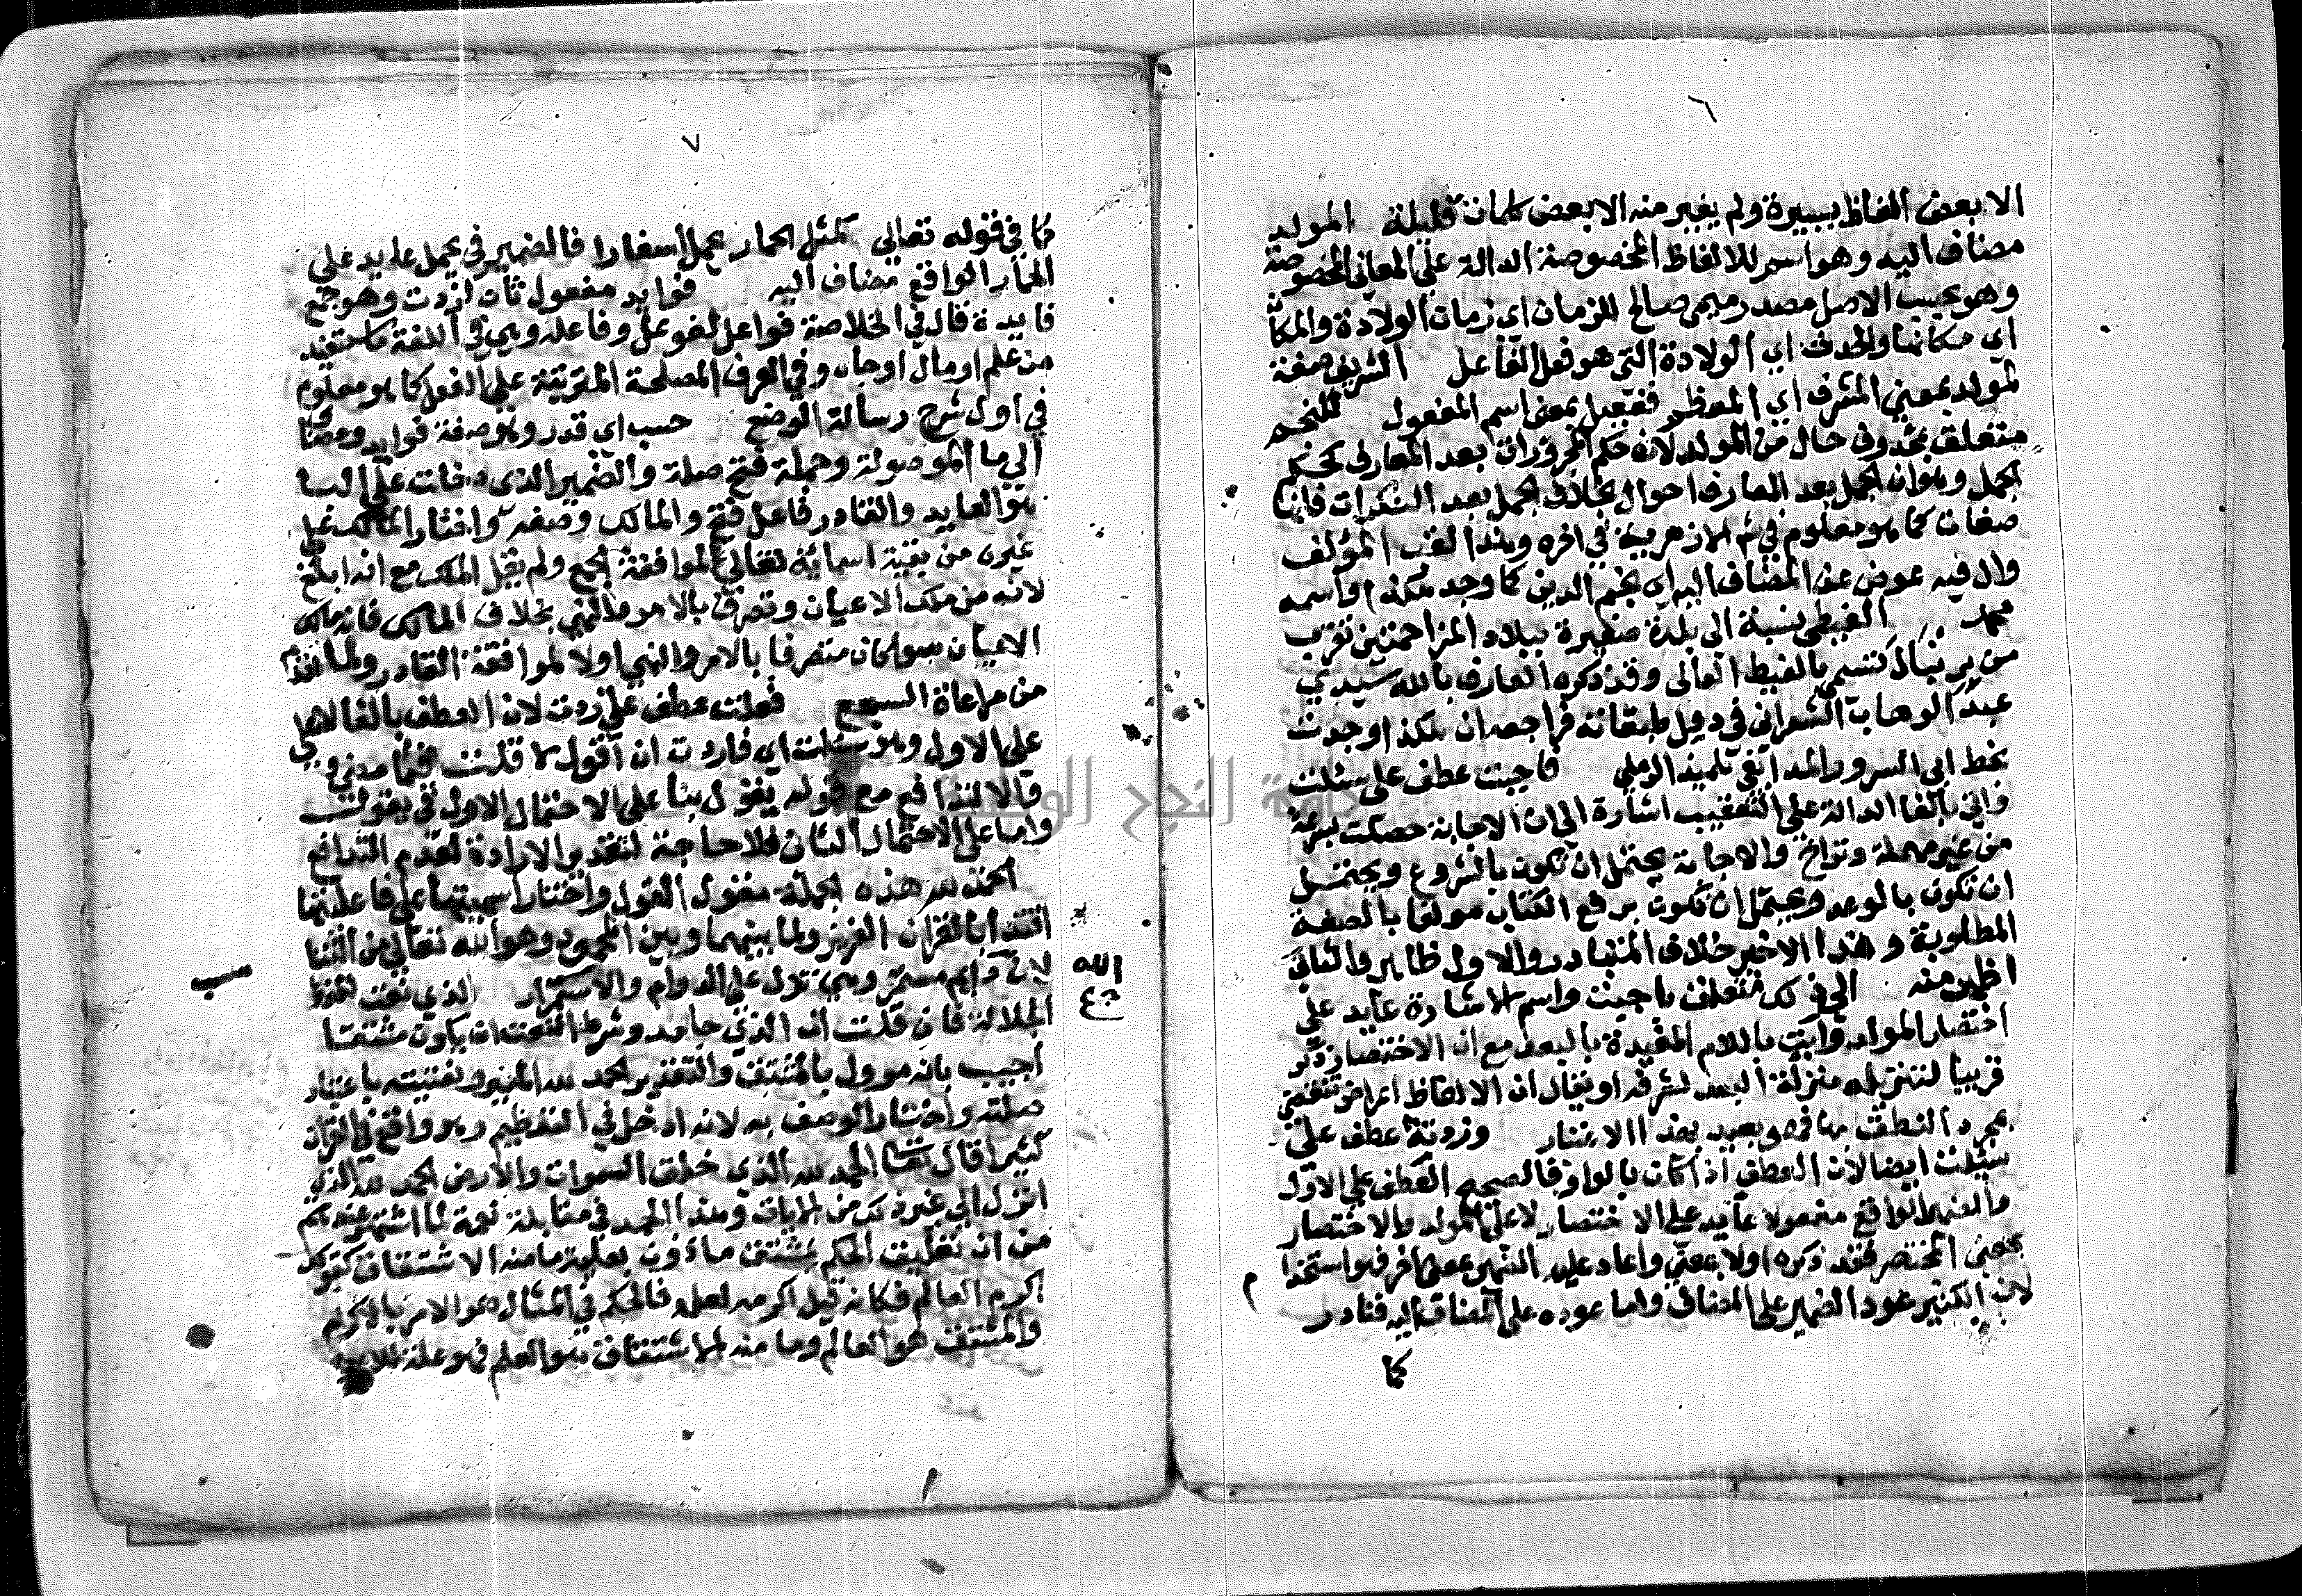 ٦
الا بعض الفاظ يسيرة ولم يغير منه الا بعض كلمات قليلة المولد
مضاف اليه وهو اسم للالفاظ المخصوصة الدالة على المعاني المخصوصة
وهو بحسب الاصل مصدر ميمي صالح للزمان اي زمان الولادة والمكان
اي مكانها والحدث اي الولادة التي هو فعل الفاعل الشريف صفة
لمولد بمعني المشرف اي المعظم ففعيل بمعني اسم المفعول للنجم
متعلق بمحذوف حال من المولد لان حكم المجرورات بعد المعارف كحكم
الجمل وهو ان الجمل بعد المعارف احوال بخلاف الجمل بعد النكرات فانها
صفات كما هو معلوم في الازهرية في اخره وهذا لقب المؤلف
وال فيه عوض عن المضاف اليه اي نجم الدين كما وجد هكذا واسمه
محمد الغيطي نسبة الى بلدة صغيرة ببلاد المزاحمتين تقرب
من برنبال تسمى بالغيط العالي وقد ذكره العارف بالله سيدي
عبد الوهاب الشعراني في ذيل طبقاته فراجعه ان هكذا وجدت
بخط ابي السرور الدابغي تلميذ الرملي فاجبت عطف على سئلت
واتى بالفا الدالة على التعقيب اشارة الى ان الاجابة حصلت بسرعة
من غير مهملة وتراخ والاجابة يحتمل ان تكون بالشروع ويحتمل
ان تكون بالوعد ويحتمل ان تكون برفع الكتاب مولفا بالصفة
المطلوبة وهذا الاخير خلاف المتبادر والاول ظاهر والثاني
اظهر منه الى ذلك متعلق باجبت واسم الاشارة عايد على
اختصار المولد واتيت باللام المفيدة بالبعد مع ان الاختصار ذكر
قريبا لتنزيله منزلة البعيد لشرفه او يقال ان الالفاظ اعراض تنقضي
بمجرد النطق بها فهو بعيد بهذا الاعتبار وزدته عطف على
سئلت ايضا لان العطف اذا كان بالواو فالصحيح العطف على الاول
والضمير الواقع مفعولا عايد على الاختصار لا على المولد والاختصار
بمعنى المختصر فقد ذكره اولا بمعنى واعاد عليه الضمير بمعنى اخر فهو استخدا م
لان الكثير عود الضمير على المضاف واما عوده على المضاف اليه فنادر
كما
٧
كما في قوله تعالي كمثل الحمار يحمل اسفارا فالضمير في يحمل عايد على
الحمار الواقع مضاف اليه فوايد مفعول ثان لزدت وهو جمع
فايدة قال في الخلاصة فواعل لفوعل وفاعل وهي في اللغة ما استفيد
من علم او مال او جاه وفي العرف المصلحة المترتبة على الفعل كما هو معلوم
في اول شرح رسالة الوضع حسب اي قدر وهو صفة فوايد ومضا
الى ما الموصولة وجملة فتح صلة والضمير الذي دخلت عليه البا
هو العايد والقادر فاعل فتح والمالك وصفه واختار المالك على
غيره من بقية اسمائه تعالى لموافقة الجمع ولم يقل الملك مع انه ابلغ
لانه من ملك الاعيان وتصرف بالامر والنهي بخلاف المالك فانه ملك
الاعيان سوا كان متصرفا بالامر والنهي اولا لموافقة القادر ولما تقدم
من مراعاة السجع فقلت عطف على زدت لان العطف بالفا لاهلي
على الاول وهو سئلت اي فاردت ان اقول قلت فيما مضى
والا لتدافع مع قوله يقول بنا على الاحتمال الاول في يقول
واما على الاحتمال الثاني فلا حاجة لتقدير الارادة لعدم التدافع
الحمد لله هذه الجملة مقول القول واختار اسميتها على فعليتها
اقتدا بالقران العزيز ولما بينهما وبين المحمود وهو الله تعالى من الثنا
لان دايم مستمر وهي تدل على الدوام والاستمرار الذي نعت للفظ
الله
الجلالة فان قلت ان الذي جامد وشرط النعت ان يكون مشتقا
اجيب بانه موول بالمشتق والتقدير الحمد لله المنير ونعتيته باعتبار
صلته واختار الوصف به لانه ادخل في التعظيم وهو واقع في القران
كثيرا قال تعالى الحمد لله الذي خلق السموات والارض الحمد لله الذي
انزل الى غير ذلك من الايات وهذا الحمد في مقابلة نعمة لما اشتهر عندهم
من ان تعليق الحكم بمشتق ماذون بعلية ما منه الاشتقاق كقولك
اكرم العالم فكانه قيل اكرمه لعلمه فالحكم في المثال هو الامر بالاكرام
والمشتق هو العالم وما منه الاشتقاق هو العلم فهو علة للامر